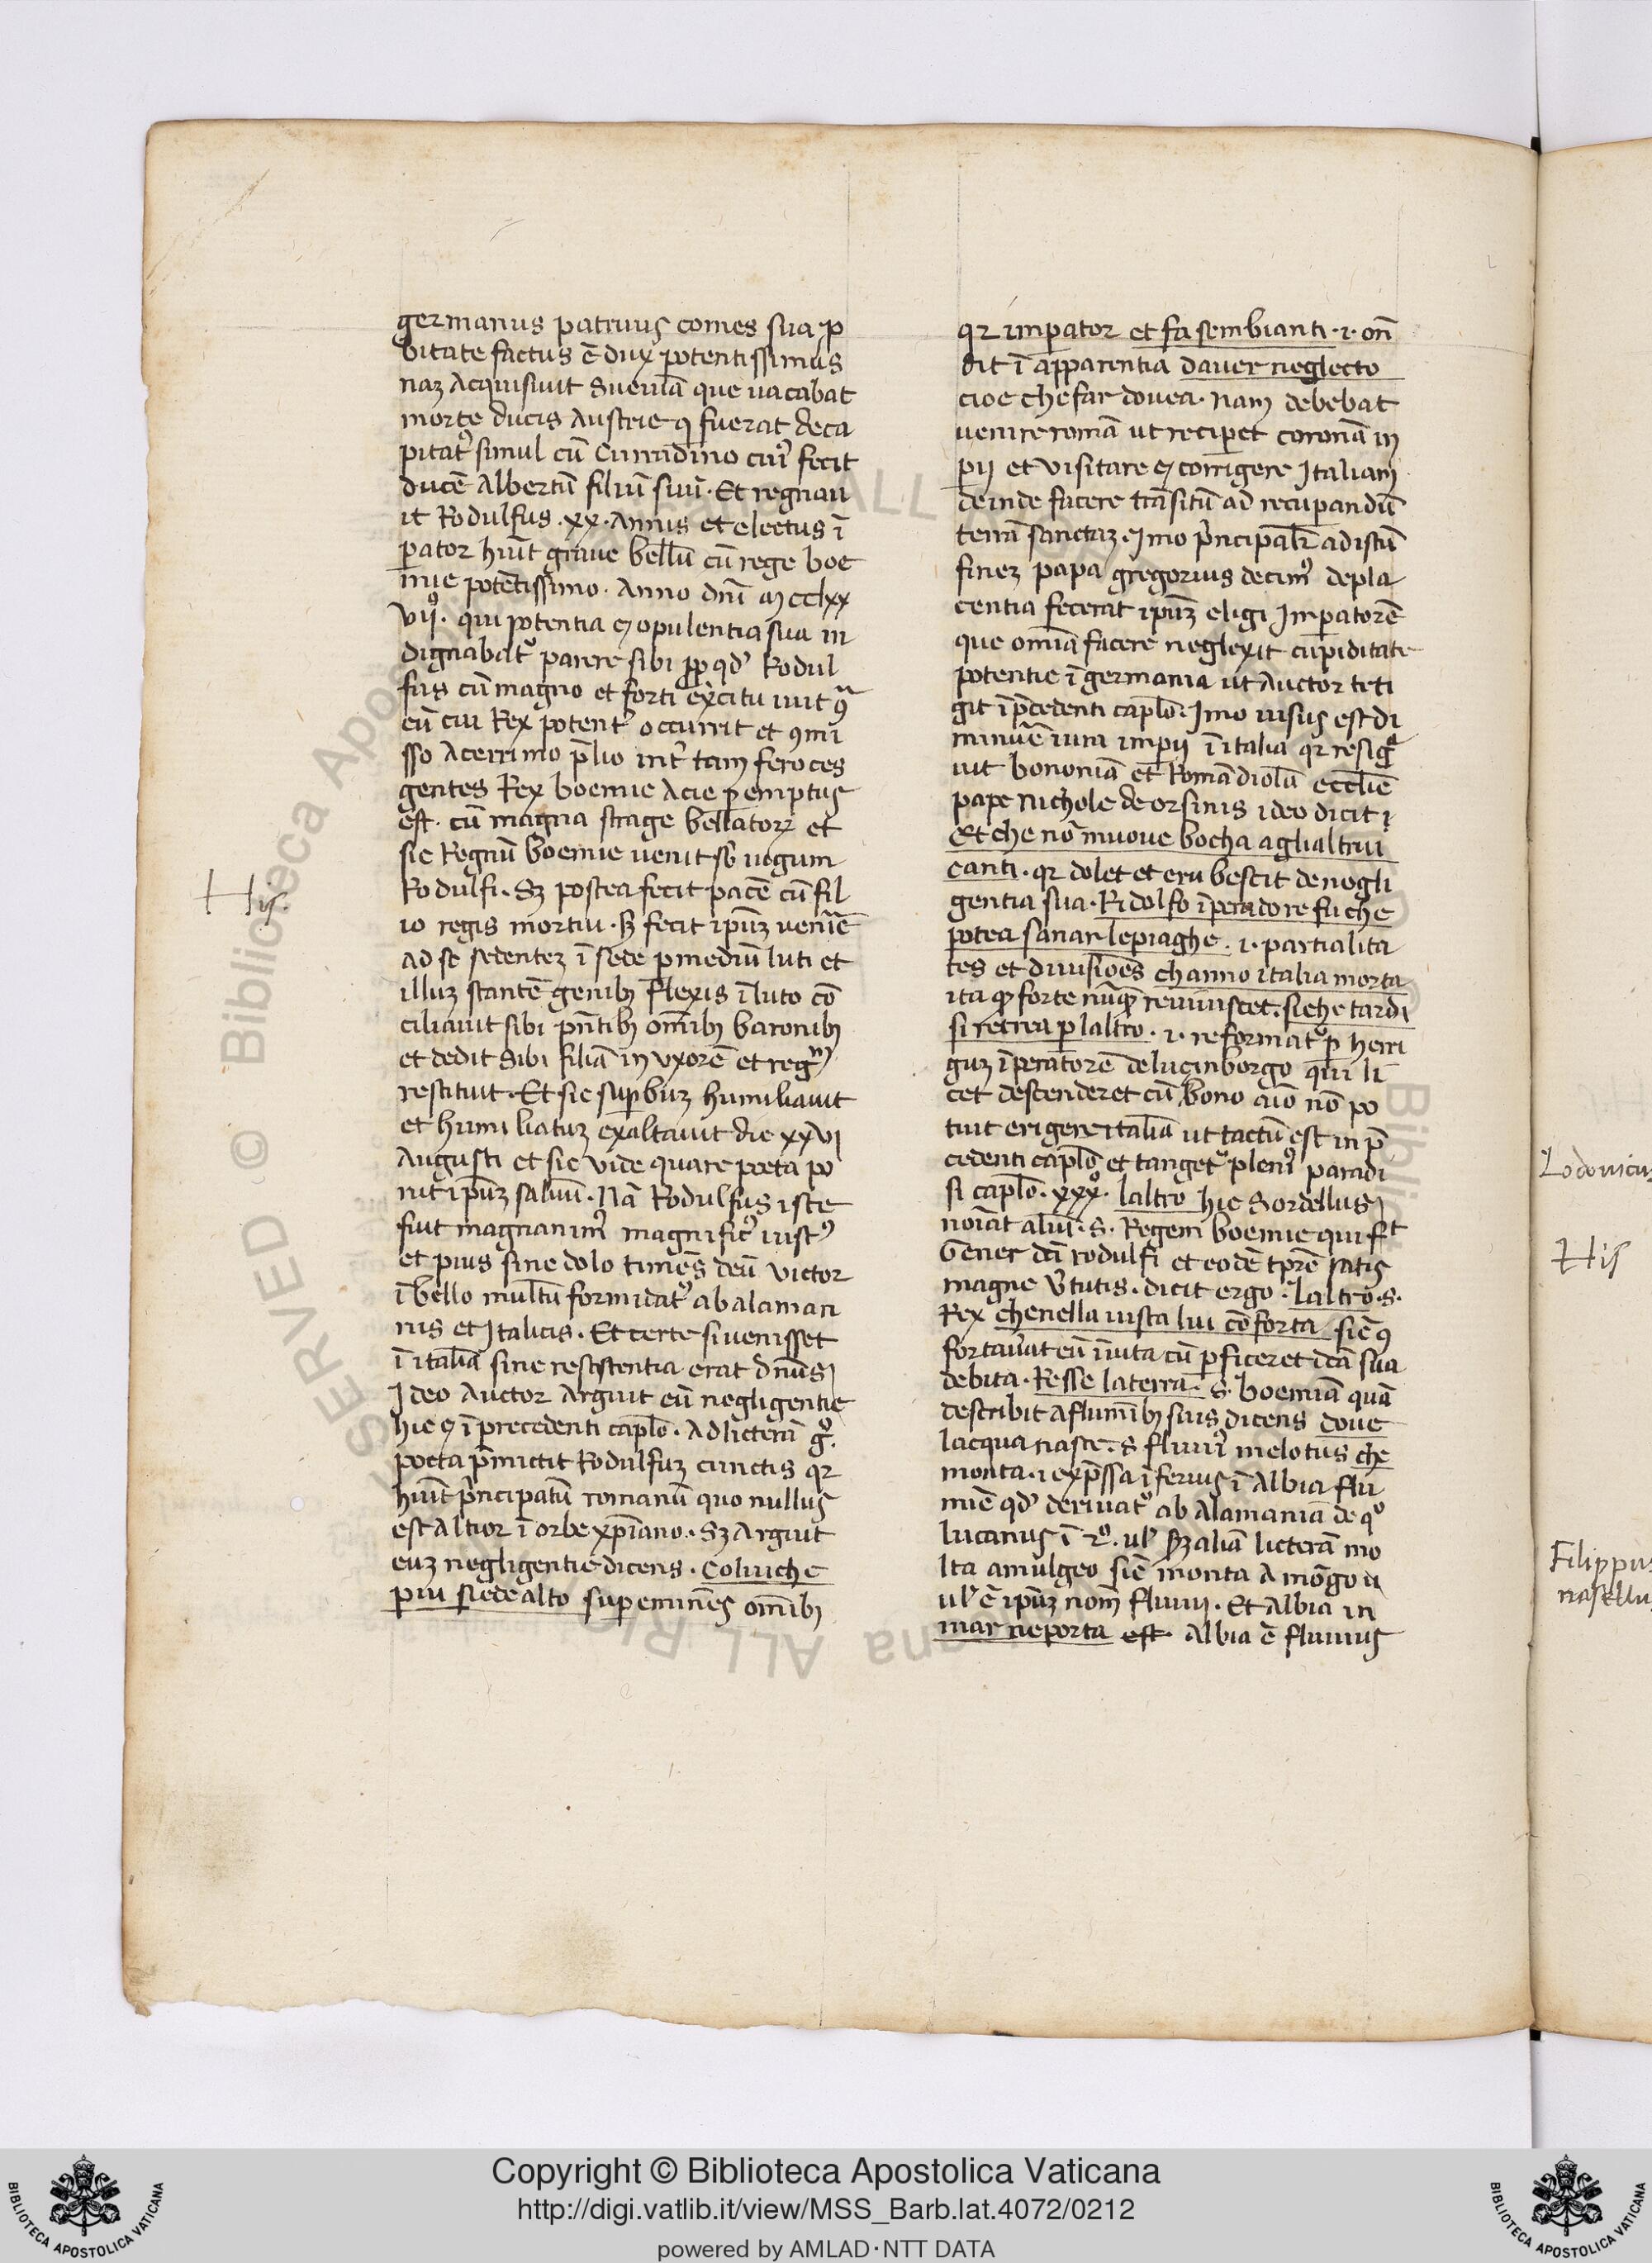 germanus patruus comes sua ꝓ
bitate factus ē dux potentissimus
naꝫ acquisiuit Sueuiā que uacabat
morte ducis Austrie q fuerat deca
pitatꝰ simul cū Curradino cuiꝰ fecit
ducē Albertū filiū suū. Et regnau
it Rodulfus .xx. Annis et electus ī
perator hūit graue bellū cū rege boe
mie potētissimo. Anno dnī mcclxx
vii. qui potentia ꝫ opulentia sua in
dignabatꝰ parere sibi ꝓp qd Rodul
fus cū magno et forti exc̄itu iuit ꝯᷓ
eū cui Rex potentꝰ occurrit et ꝯmi
sso acerrimo p̄lio intꝰ tam feroces
gentes Rex boemie Acie peremptus
est. cū magna strage bellatorꝝ et
sic Regnū boemie uenit sb iugum
Rodulfi. Sꝫ postea fecit pacē cū fil
io regis mortui. Sꝫ fecit ip̄uꝫ uenire
ad se sedenteꝫ ī sede p mediū luti et
illuꝫ stantē genibꝫ flexis ī luto cō
ciliauit sibi pn̄tibꝫ om̄ibꝫ baronibꝫ
et dedit sibi filiā in uxorē et regᵐ
restituit. Et sic superbuꝫ humiliauit
et humiliatuꝫ exaltauit die xxvi
Augusti et sic vide quare poeta po
nit ip̄uꝫ saluū. Nā Rodulfus iste
fuit magnanimꝰ magnificꝰ iustꝰ
et pius sine dolo timēs deū victor
ī bello multū formidatꝰ ab alaman
nis et Italicis. Et certe si uenisset
ī italiā sine resistentia erat dn̄us
Ideo Auctor Arguit eū negligentie
hic ꝫ ī precedenti cap̄lo. Ad licterā gͦ.
poeta p̄mictit Rodulfuꝫ cunctis qꝛ
hūit pͥncipatū romanū quo nullus
est altior ī orbe xp̄iano. Sꝫ Arguit
euꝫ negligentie dicens. Colui che
piu siede alto supereminēs om̄ibꝫ
His.
qꝛ imperator et fa sembianti .i. on̄
dit ī apparentia dauer neglecto
cioe che far douea. nam debebat
uenire romā ut reciperet coronā im
perii et visitare ꝫ corrigere Italiam
deinde facere trāsitū ad recuperandū
terrā sanctaꝫ. Imo pͥncipalr̄ ad istū
fineꝫ papa gregorius decimꝰ de pla
centia fecerat ip̄uꝫ eligi Imperatorē
que omīa facere neglexit cupiditate
potentie ī germania ut Auctor teti
git ī p̄cedenti cap̄lo. Imo uisus est di
minuē iura imperii ī italia qꝛ resigᵃ
uit bononiā et Romādiolā eccl̄ie
pape nichole de orsinis ideo dicit
Et che nō muoue bocha agli altrui
canti. qꝛ dolet et erubescit de negli
gentia sua. Ridolfo īperadore fu che
potea sanar le piaghe .i. partialita
tes et diuisiōes channo italia morta
ita ꝙ forte nūqꝫ reuiuiscet. sieche tardi
si recrea per laltro .i. reformatꝰ p herri
guꝫ īperatorē de lucinborgo qui li
cet descenderet cū bono aīo nō po
tuit erigere italiā ut tactū est in p̄
cedenti cap̄lo et tangetꝰ pleniꝰ paradi
si cap̄lo .xxxͦ. laltro hic Sordellus
noīat aliū .s. Regem boemie qui fᵗ
Gener dc̄i rodulfi et eodē tp̄re satis
magne v̄tutis. dicit ergo. laltro .s.
Rex che nella uista lui cōforta sic̄ ꝯ
fortau̓at eū ī uita cū perficeret īdcā sua
debita. Resse la terra .s. boemiā quā
describit a flumībꝫ suis dicens doue
lacqua nasce .s. fluuiꝰ melotus che
monta .i. exp̄ssa īferius ī Albia flu
mīe qd deriuatꝰ ab Alamania de qͦ
lucanus ī 2ͦ. ul̓ sꝫ aliā licterā mo
lta amulgeo sic̄ monta A mōgo u
ul̓ ē ip̄uꝫ nom̄ fluuii. Et Albia in
mar ne porta est. Albia ē fluuius
Lodouicus
His
Filippus
nasellu
Copyright © Biblioteca Apostolica Vaticana
http://digi.vatlib.it/view/MSS_Barb.lat.4072/0212
powered by AMLAD·NTT DATA
BIBLIOTECA APOSTOLICA VATICANA
BIBLIOTECA APOSTOLICA VATICANA